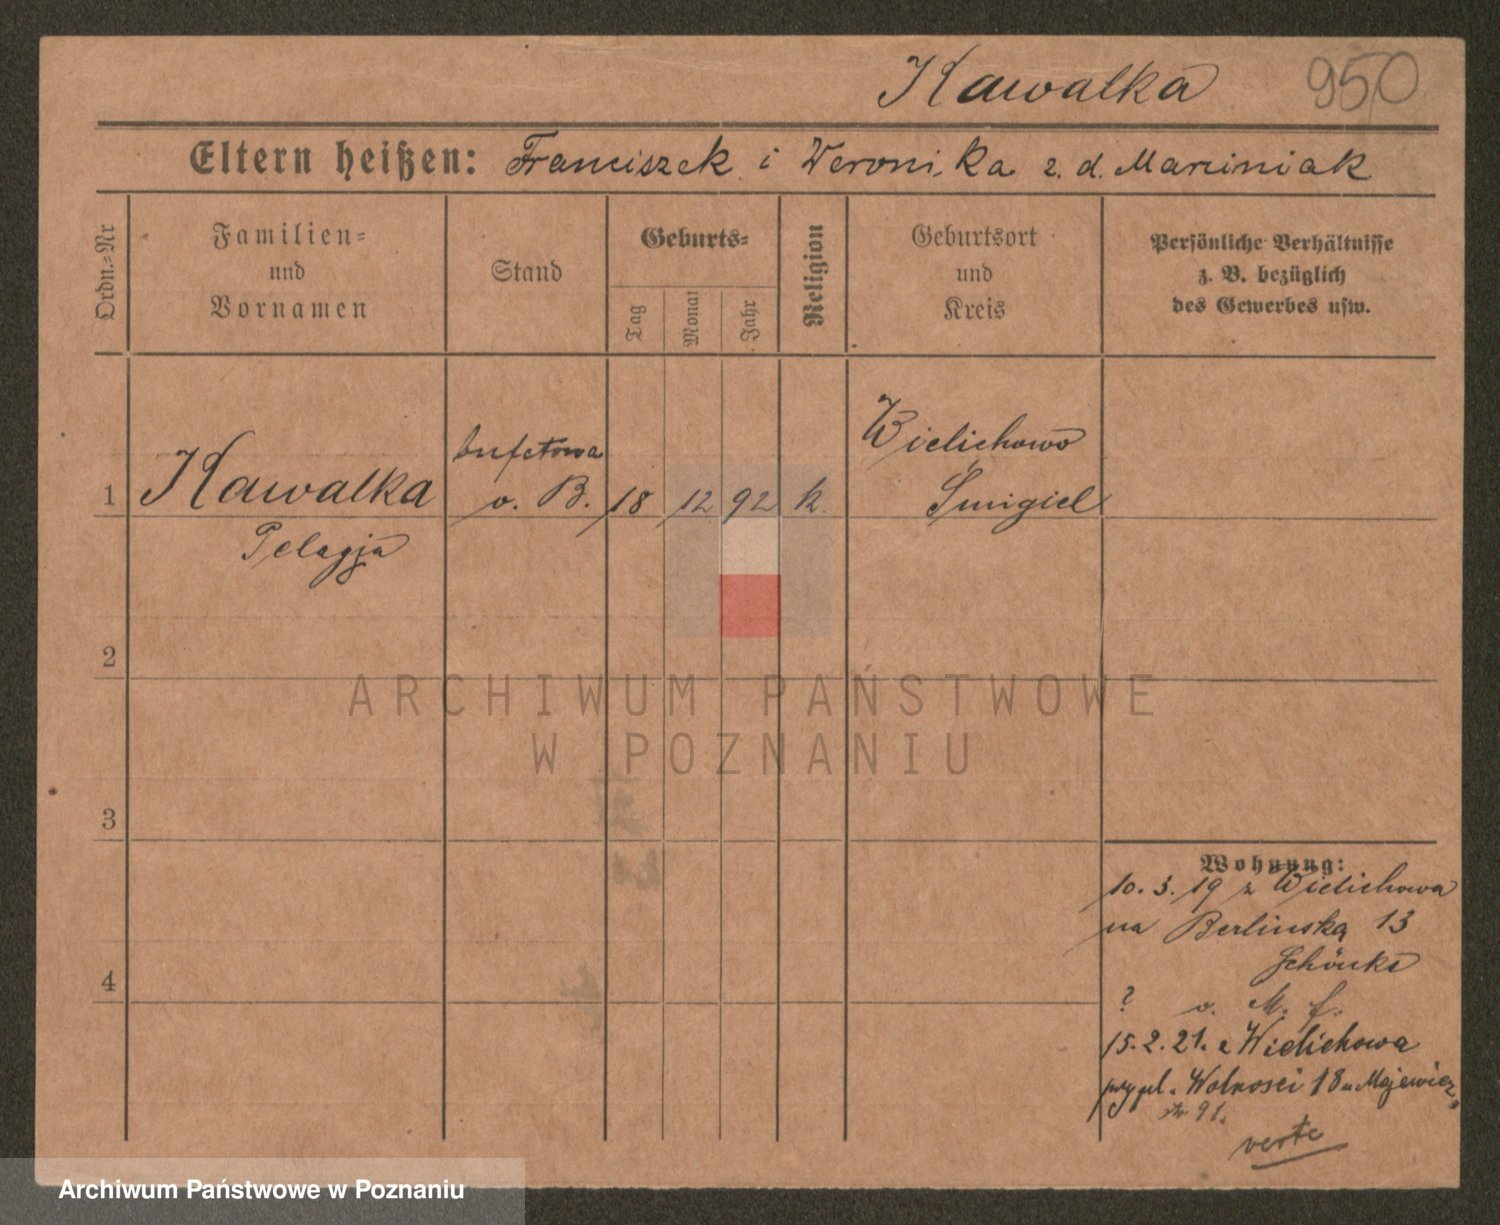 Kawalka 950
Eltern heißen: Franciszek i Weronika z. d. Marciniak
Ordn.-Nr
Familien-
und
Vornamen
Stand
Geburts-
Tag
Monat
Jahr
Religion
Geburtsort
und
Kreis
Persönliche Verhältnisse
z. B. bezüglich
des Gewerbes usw.
bufetowa
Wielichowo
1 Kawalka o. B. 18 12 92 k. Śmigiel
Pelagja
2
ARCHIWUM PAŃSTWOWE
W POZNANIU
3
Wohnung:
10. 3. 19 z Wielichowa
na Berlinską 13
Schönks
4
? o. M. f.
15. 2. 21. z Wielichowa
pl. Wolności 18 u Majewicz
91.
verte
Archiwum Państwowe w Poznaniu